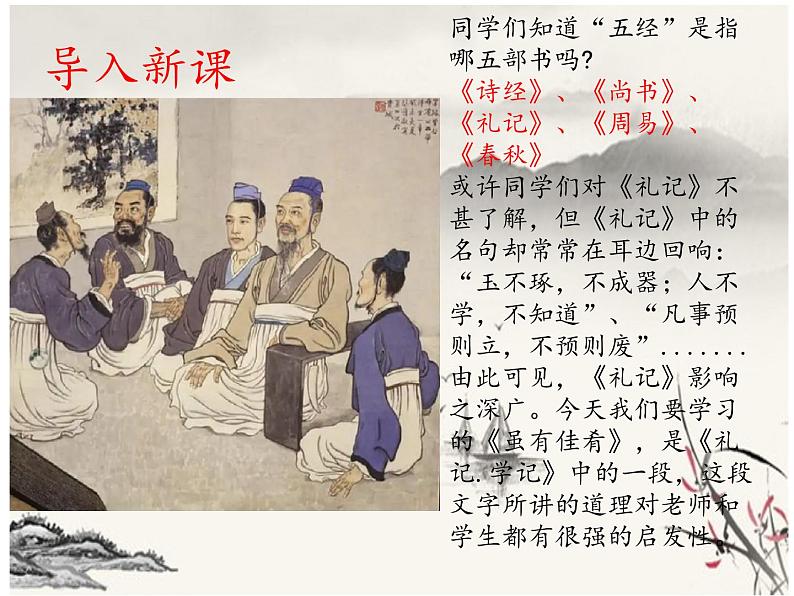 导入新课
同学们知道“五经”是指
哪五部书吗?
《诗经》、《尚书》、
《礼记》、《周易》、
《春秋》
或许同学们对《礼记》不
甚了解，但《礼记》中的
名句却常常在耳边回响：
“玉不琢，不成器；人不
学，不知道”、“凡事预
则立，不预则废”.......
由此可见，《礼记》影响
之深广。今天我们要学习
的《虽有佳肴》，是《礼
记.学记》中的一段，这段
文字所讲的道理对老师和
学生都有很强的启发性。